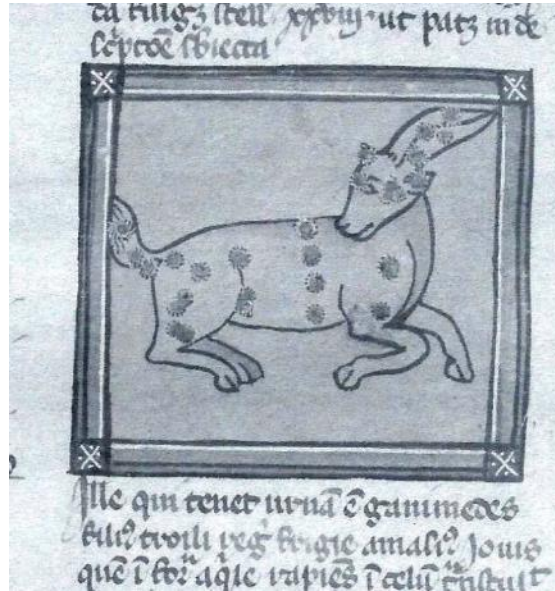 ta fulgꝫ stell' xxviii. ut patꝫ in de
sc̄ptōe sbiecta
Ille qui tenet urnā ē ganimedes
filiꝰ troili reg' frigie amasiꝰ Jouis
quē ī for aq̄le rapiēs ī celū